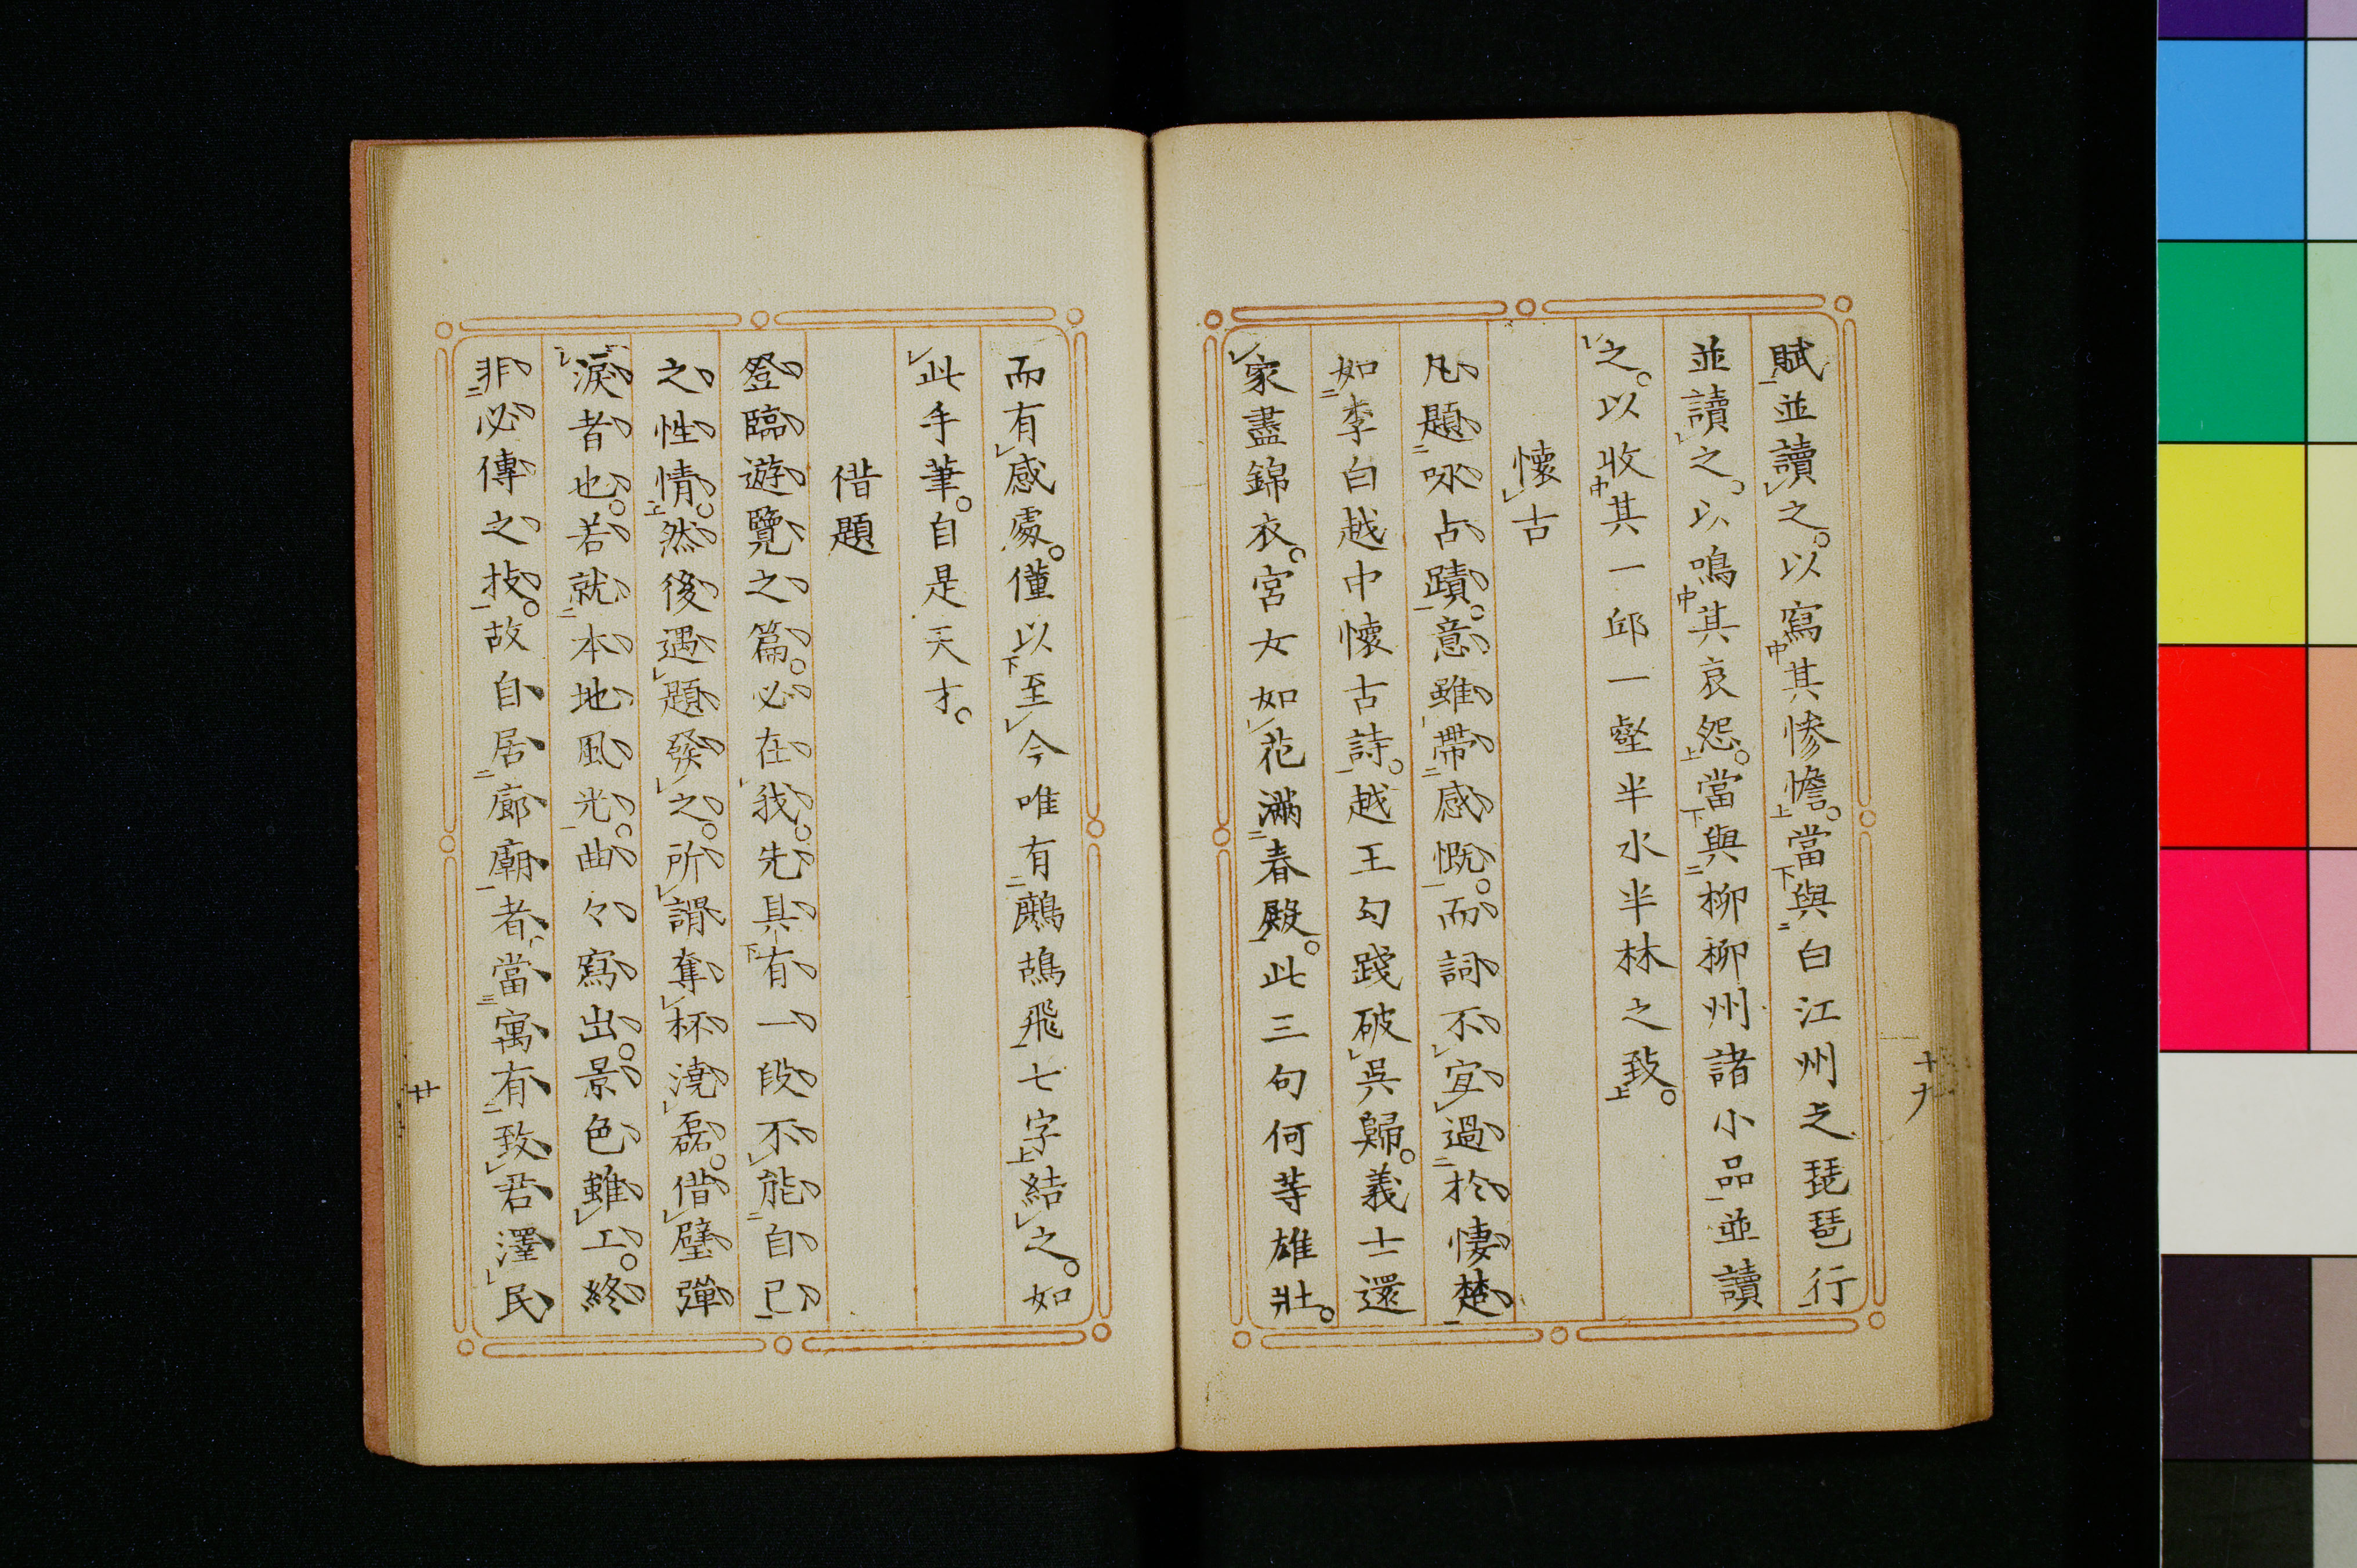 賦並讀之。以寫其慘憺。當與白江州之琵琶行
並讀之。以鳴其哀怨。當與柳柳州諸小品並讀
之。以收其一邱一壑半水半林之致。
懷古
凡題咏占蹟。意雖帶感慨。而詞不宜過於悽楚
如李白越中懷古詩。越王勾踐破吳歸。義士還
家盡錦衣。宮女如花滿春殿。此三句何等雄壯。
十九
而有感處。僅以至今唯有鷓鴣飛七字結之。如
此手筆。自是天才。
借題
登臨遊覽之篇。必在我。先具有一段不能自已
之性情。然後遇題發之。所謂奪杯澆磊。借璧彈
淚者也。若就本地風光。曲々寫出。景色雖工。終
非必傳之技。故自居廊廟者、當寓有致君澤民
廿